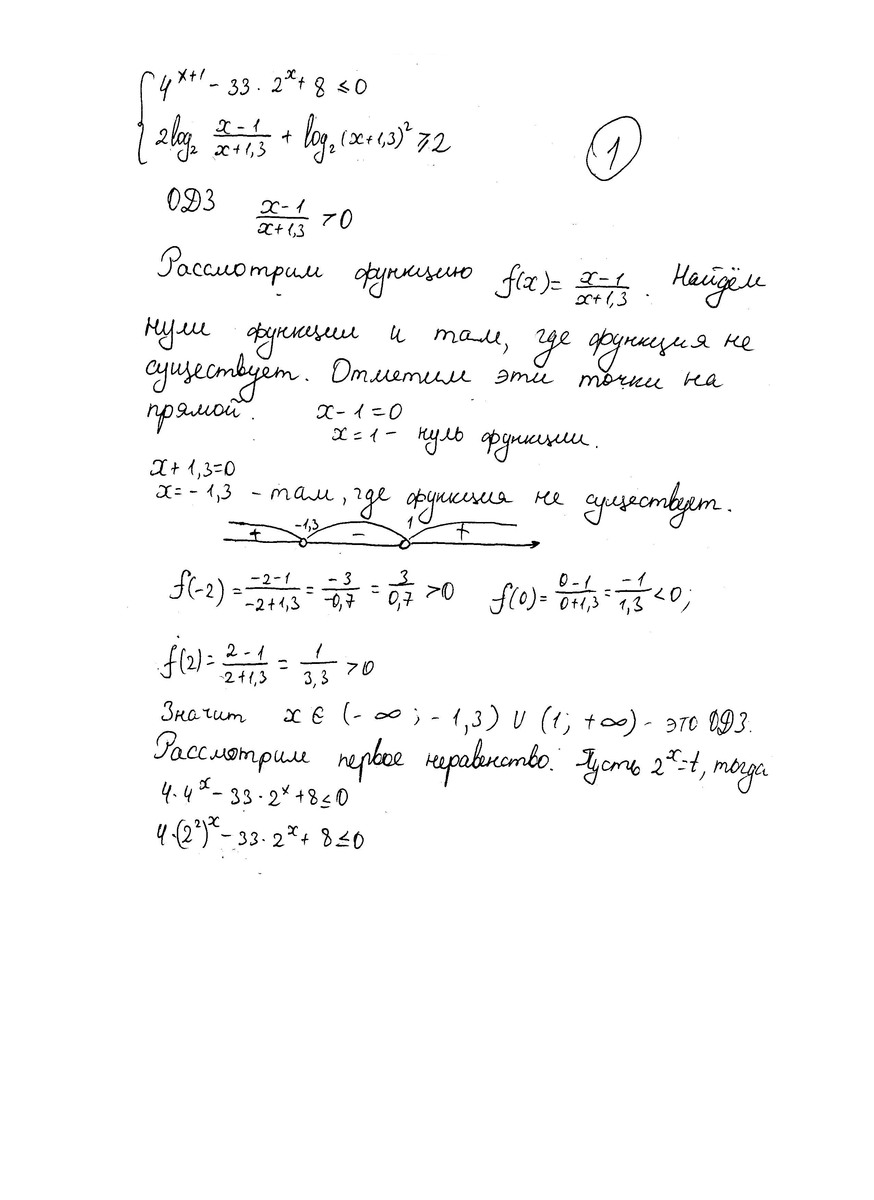 { 4^(x+1) - 33 · 2^x + 8 ≤ 0
2log₂ (x-1)/(x+1,3) + log₂(x+1,3)² ≥ 2
①
ОДЗ (x-1)/(x+1,3) > 0
Рассмотрим функцию f(x) = (x-1)/(x+1,3). Найдём
нули функции и там, где функция не
существует. Отметим эти точки на
прямой. x - 1 = 0
x = 1 - нуль функции.
x + 1,3 = 0
x = - 1,3 - там, где функция не существует.
+ -1,3 - 1 +
f(-2) = (-2-1)/(-2+1,3) = (-3)/(-0,7) = 3/(0,7) > 0 f(0) = (0-1)/(0+1,3) = (-1)/(1,3) < 0;
f(2) = (2-1)/(2+1,3) = 1/(3,3) > 0
Значит x ∈ (- ∞ ; - 1,3) ∪ (1; +∞) - это ОДЗ.
Рассмотрим первое неравенство. Пусть 2^x = t, тогда
4·4^x - 33 · 2^x + 8 ≤ 0
4·(2²)^x - 33 · 2^x + 8 ≤ 0